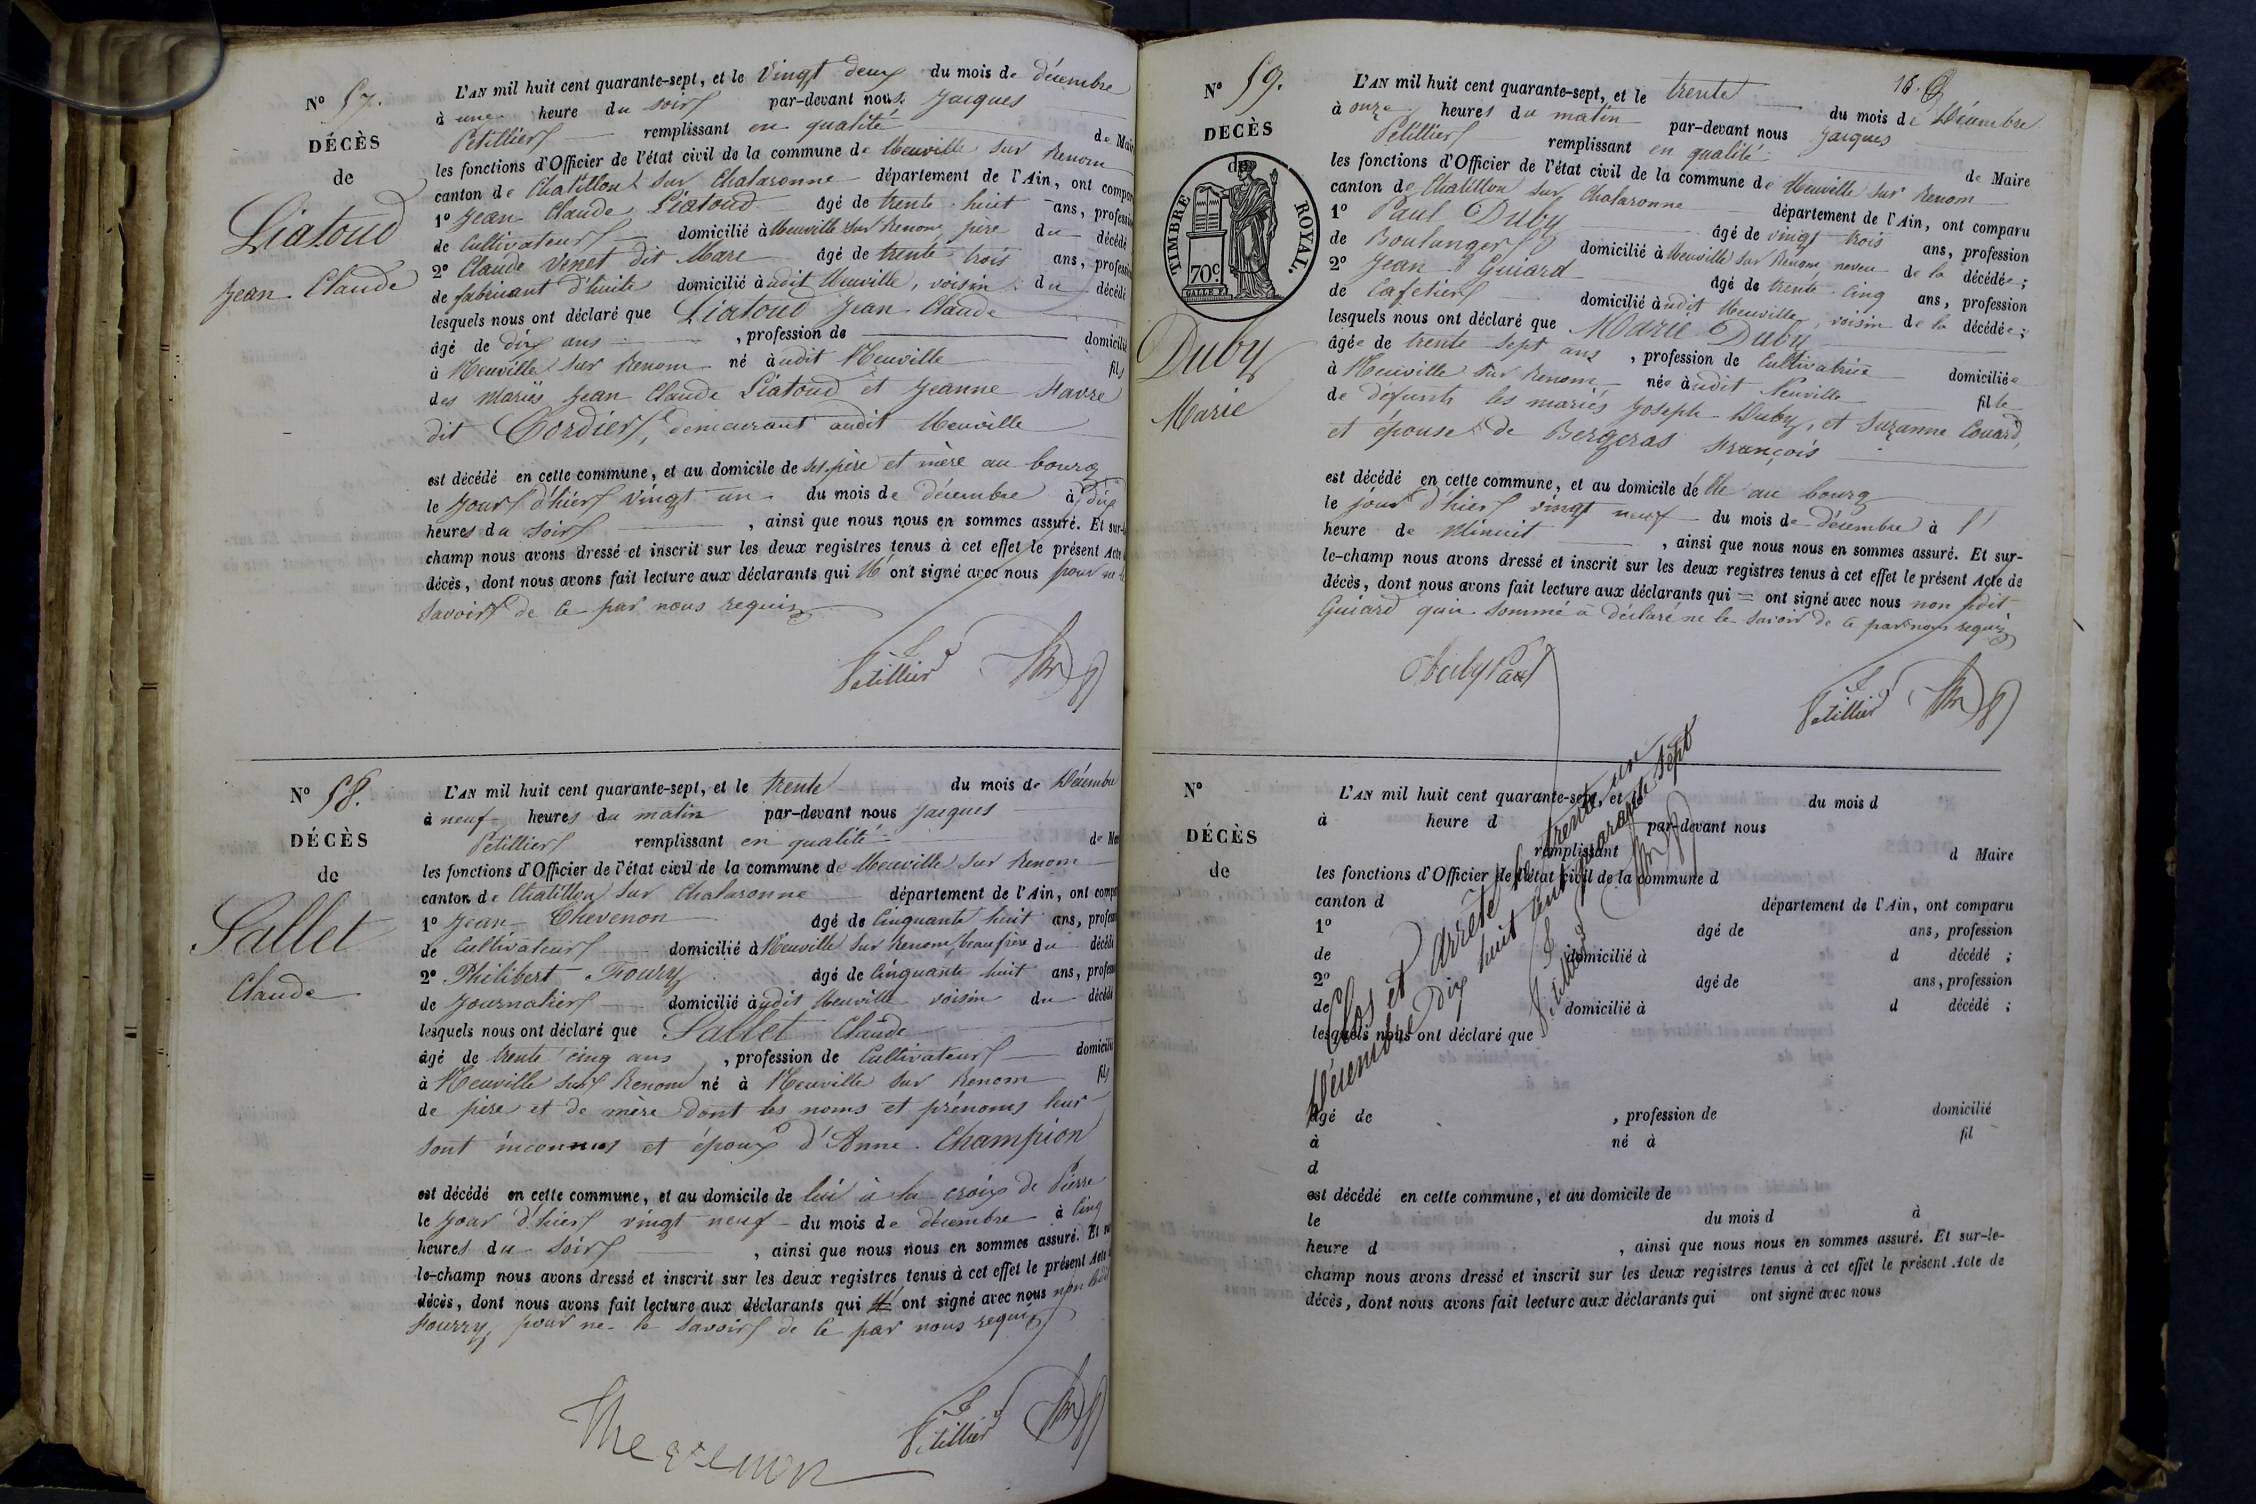 N° 57.
DÉCÈS
de
Liatoud
Jean Claude
L'AN mil huit cent quarante-sept, et le Vingt deux du mois de décembre
à une heure du soir par-devant nous Jacques
Petillier remplissant en qualité de Mair
les fonctions d'Officier de l'état civil de la commune de Neuville sur Renom
canton de Chatillon sur Chalaronne département de l'Ain, ont compar
1° Jean Claude Liatoud âgé de trente huit ans, professi
de Cultivateur domicilié à Neuville sur Renom, père du décédé
2° Claude Venet dit Mare âgé de trente trois ans, professi
de fabricant d'huile domicilié audit Neuville, voisin du décédé
lesquels nous ont déclaré que Liatoud Jean Claude
âgé de dix ans , profession de domicilié
à Neuville sur Renom né audit Neuville fils
des mariés Jean Claude Liatoud et Jeanne Favre
dit Cordier, demeurant audit Neuville
est décédé en cette commune, et au domicile de ses père et mère au bourg
le jour d'hier vingt un du mois de décembre à dix
heures du soir , ainsi que nous nous en sommes assuré. Et sur-le
champ nous avons dressé et inscrit sur les deux registres tenus à cet effet le présent Acte
décès, dont nous avons fait lecture aux déclarants qui N' ont signé avec nous pour ne le
savoir de ce par nous requis
Petillier
N° 58.
DÉCÈS
de
Sallet
Claude
L'AN mil huit cent quarante-sept, et le trente du mois de Décembre
à neuf heures du matin par-devant nous Jacques
Petillier remplissant en qualité de Mai
les fonctions d'Officier de l'état civil de la commune de Neuville sur Renom
canton de Chatillon sur Chalaronne département de l'Ain, ont compa
1° Jean Chevenon âgé de Cinquante huit ans, profess
de Cultivateur domicilié à Neuville sur Renom, beau frère du décédé
2° Philibert Fourry âgé de Cinquante huit ans, profess
de Journalier domicilié audit Neuville voisin du décédé
lesquels nous ont déclaré que Sallet Claude
âgé de trente cinq ans , profession de Cultivateur domicilié
à Neuville sur Renom né à Neuville sur Renom fils
de père et de mère dont les noms et prénoms leur
sont inconnus et époux d'Anne Champion
est décédé en cette commune, et au domicile de lui à la croix de Pierre
le jour d'hier vingt neuf du mois de décembre à Cinq
heures du soir , ainsi que nous nous en sommes assuré. Et sur
le-champ nous avons dressé et inscrit sur les deux registres tenus à cet effet le présent Acte d
décès, dont nous avons fait lecture aux déclarants qui ont signé avec nous non ledit
Fourry, pour ne le savoir de ce par nous requis
Petillier
N° 59.
16.
DÉCÈS
de
TIMBRE ROYAL.
70c
Duby
Marie
L'AN mil huit cent quarante-sept, et le trente du mois de Décembre
à onze heures du matin par-devant nous Jacques
Petillier remplissant en qualité de Maire
les fonctions d'Officier de l'état civil de la commune de Neuville sur Renom
canton de Chatillon sur Chalaronne département de l'Ain, ont comparu
1° Paul Duby âgé de vingt trois ans, profession
de Boulanger domicilié à Neuville sur Renom, neveu de la décédée ;
2° Jean Guiard âgé de trente cinq ans, profession
de Cafetier domicilié audit Neuville, voisin de la décédée ;
lesquels nous ont déclaré que Marie Duby
âgée de trente sept ans , profession de Cultivatrice domiciliée
à Neuville sur Renom née audit Neuville fille
de défunts les mariés Joseph Duby, et Suzanne Couard,
et épouse de Bergeras François
est décédé en cette commune, et au domicile d'elle au bourg
le jour d'hier vingt neuf du mois de décembre à l'
heure de Minuit , ainsi que nous nous en sommes assuré. Et sur-
le-champ nous avons dressé et inscrit sur les deux registres tenus à cet effet le présent Acte de
décès, dont nous avons fait lecture aux déclarants qui ont signé avec nous non ledit
Guiard qui sommé a déclaré ne le savoir de ce par nous requis
Duby Paul
Petillier
N°
DÉCÈS
de
L'AN mil huit cent quarante-sept, et le du mois d
à heure d par-devant nous
remplissant d Maire
les fonctions d'Officier de l'état civil de la commune d
canton d département de l'Ain, ont comparu
1° âgé de ans, profession
de domicilié à d décédé ;
2° âgé de ans, profession
de domicilié à d décédé ;
lesquels nous ont déclaré que
âgé de , profession de domicilié
à né à fil
d
est décédé en cette commune, et au domicile de
le du mois d à
heure d , ainsi que nous nous en sommes assuré. Et sur-le-
champ nous avons dressé et inscrit sur les deux registres tenus à cet effet le présent Acte de
décès, dont nous avons fait lecture aux déclarants qui ont signé avec nous
Clos et arrêté le trente un
Décembre Dix huit cent quarante sept
Petillier